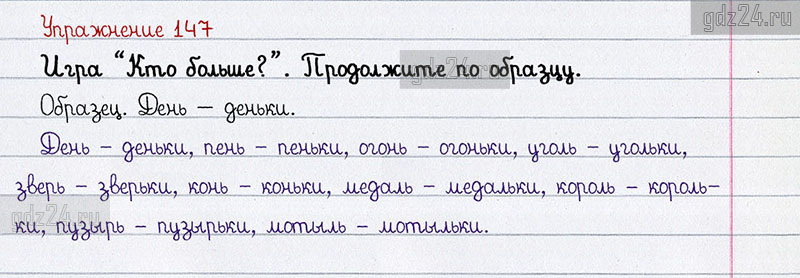 gdz24.ru
Упражнение 147
Игра “Кто больше?”. Продолжите по образцу.
gdz24.ru
Образец. День – деньки.
День – деньки, пень – пеньки, огонь – огоньки, уголь – угольки,
зверь – зверьки, конь – коньки, медаль – медальки, король – король-
ки, пузырь – пузырьки, мотыль – мотыльки.
gdz24.ru